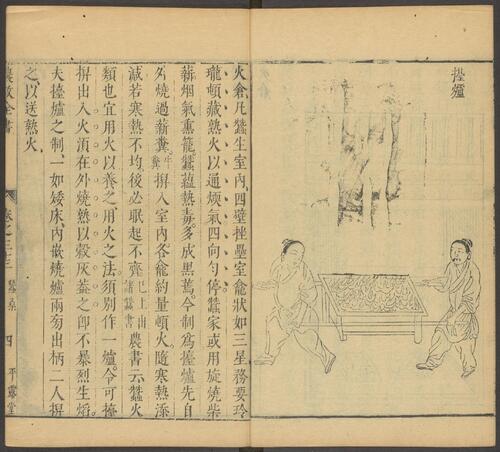 擡爐
火倉凡蠶生室內四壁挫壘室龕狀如三星務要玲
瓏頓藏熱火以通煖氣四向勻停蠶家或用旋燒柴
薪烟氣熏籠蠶蘊熱毒多成黑蔫今制為擡爐先自
外燒過薪糞牛糞擡入室內各龕約量頓火隨寒熱添
減若寒熱不均後必眠起不齊已上出諸蠶書農書云蠶火
類也宜用火以養之用火之法須別作一爐令可擡
擡出入火須在外燒熟以穀灰蓋之即不暴烈生熖
夫擡爐之制一如矮床內嵌燒爐兩旁出柄二人擡
之以送熱火
農政全書
卷之三十三
蠶桑
四
平露堂